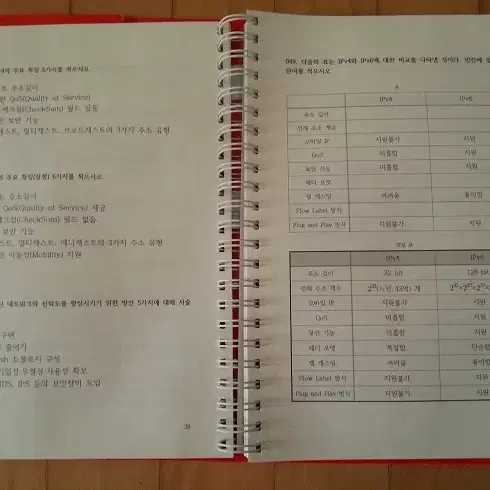 주요 특징 5가지를 적으시오.
주소길이
QoS(Quality of Service)
체크섬(CheckSum) 필드 있음
보안 기능
캐스트, 멀티캐스트, 브로드캐스트의 3가지 주소 유형
주요 특징(장점) 6가지를 적으시오.
주소길이
QoS(Quality of Service) 제공
체크섬(CheckSum) 필드 없음
보안 기능
스트, 멀티캐스트, 애니캐스트의 3가지 주소 유형
이동성(Mobility) 지원
네트워크의 신뢰도를 향상시키기 위한 방안 5가지에 대해 서술
구현
줄이기
sh 토폴로지 구성
기밀성·무결성·가용성 확보
IDS, IPS 등의 보안장비 도입
28
049. 다음의 표는 IPv4와 IPv6에 대한 비교를 나타낸 것이다. 빈칸에 알
단어를 적으시오.
표
IPv4 IPv6
주소 길이
전체 주소 개수
모바일 IP 지원불가 지원
QoS 미흡함 지원
보안 기능 미흡함 지원
헤더 포맷
웹 캐스팅 어려움 용이함
Flow Label 방식
Plug and Play 방식 지원불가 지원
정답 표
IPv4 IPv6
주소 길이 32 bit 128 bit
전체 주소 개수 2³²(노억 43억) 개
모바일 IP 지원불가 지원
QoS 미흡함 지원
보안 기능 미흡함 지원
헤더 포맷 복잡함 단순함
웹 캐스팅 어려움 용이함
Flow Label 방식 지원불가 지원
Plug and Play 방식 지원불가 지원